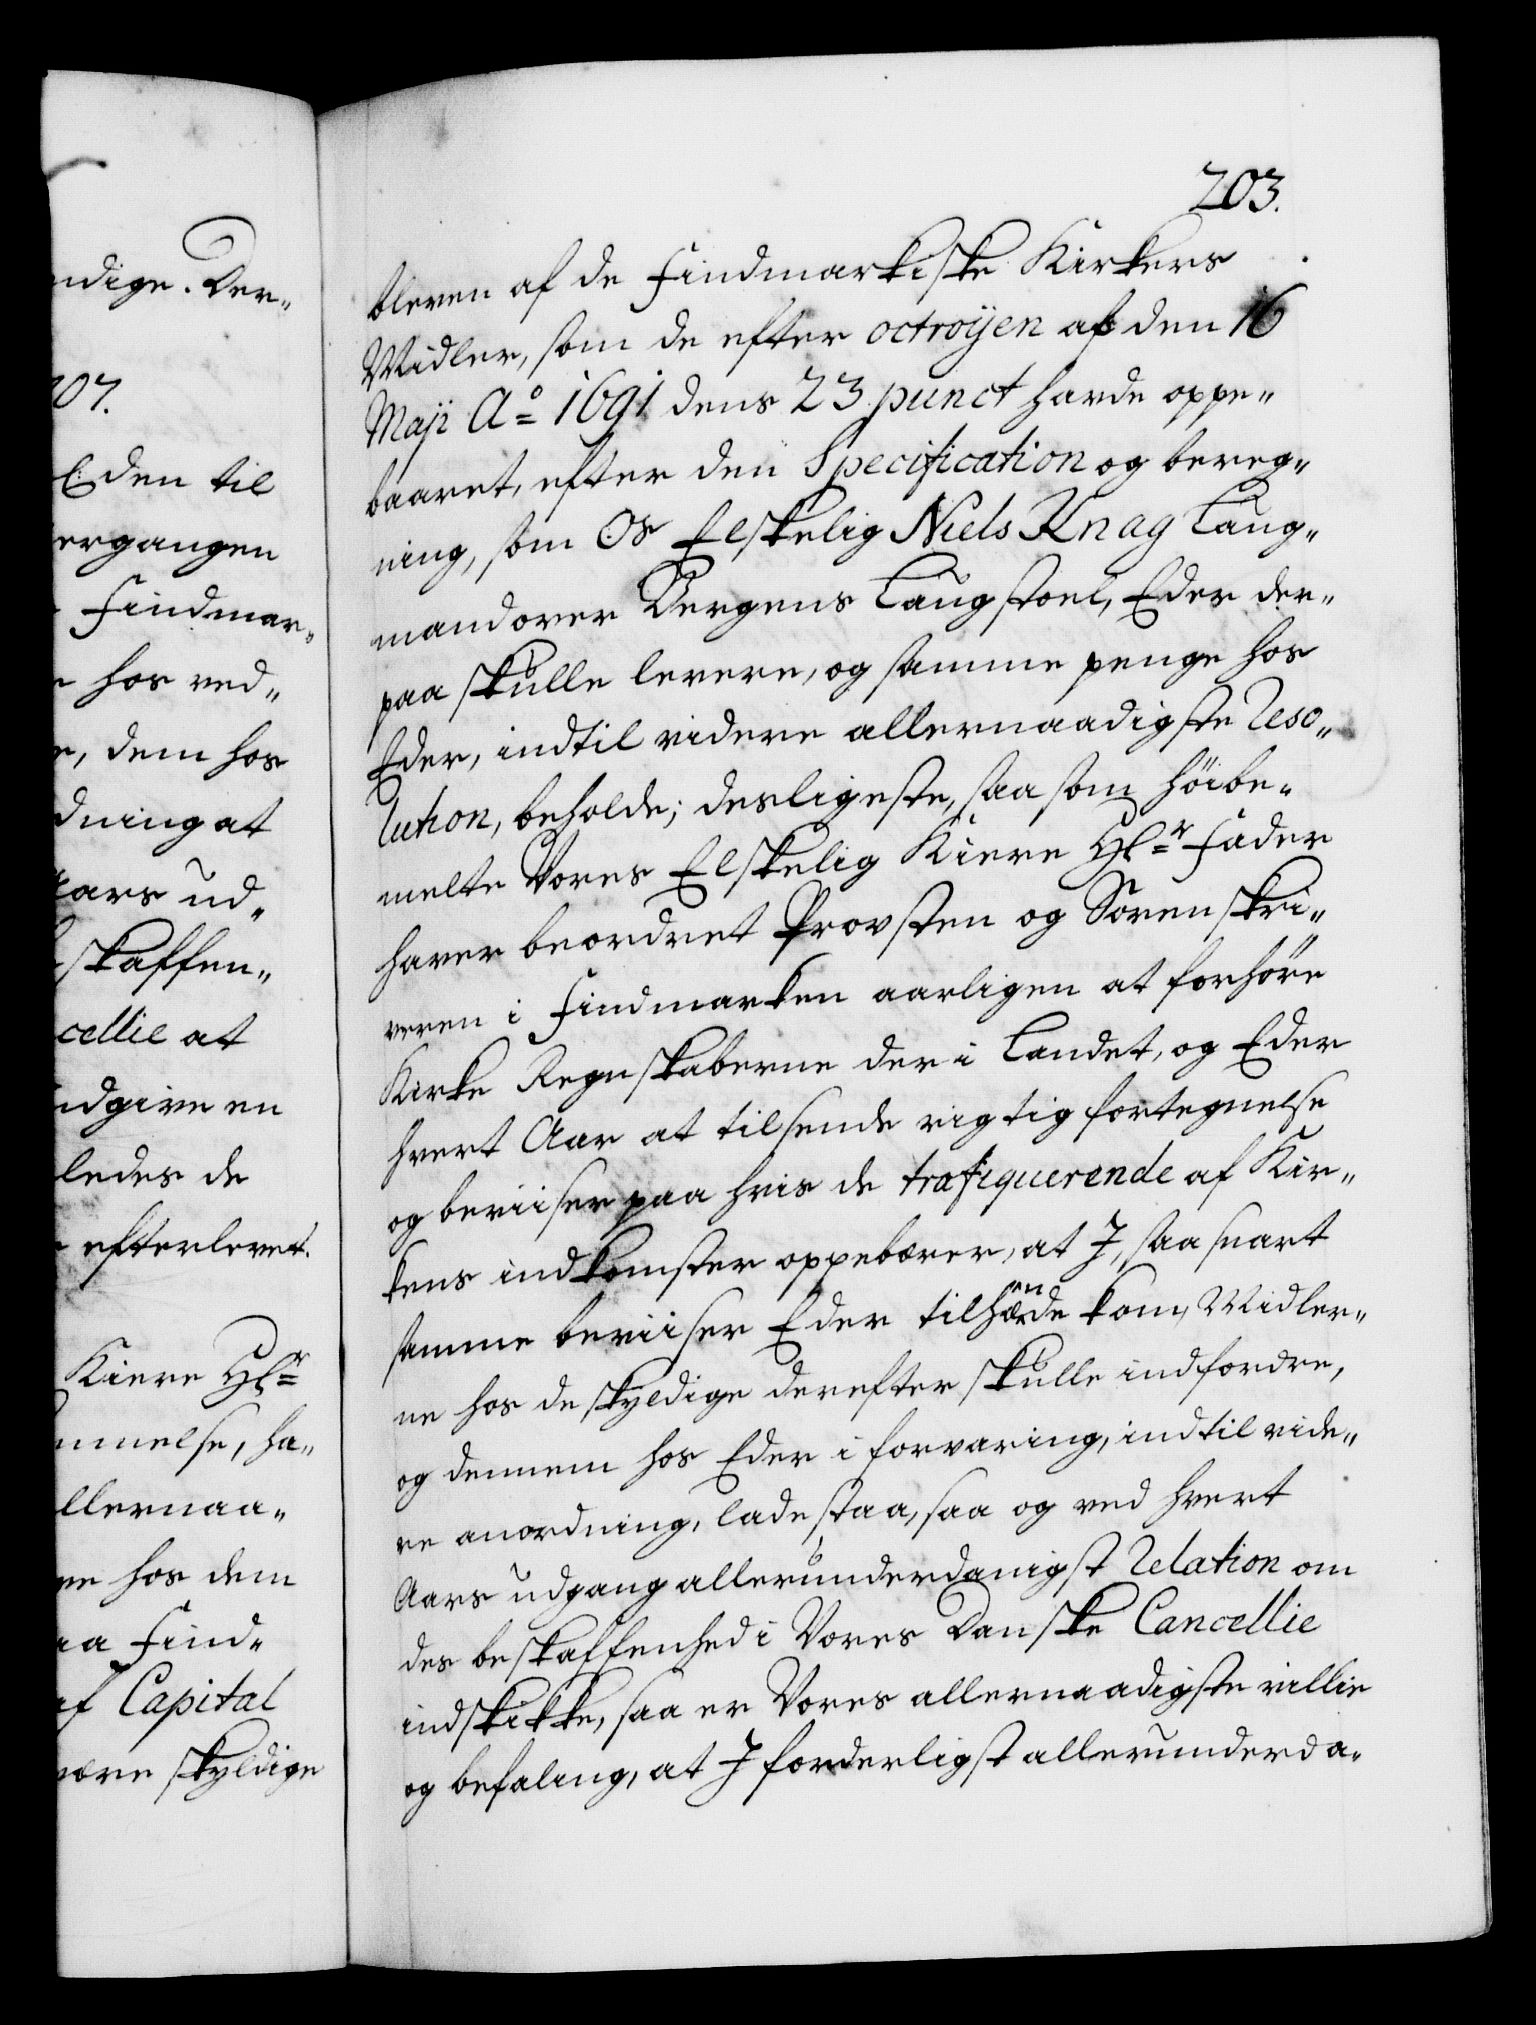 ndige. Der„
07.
Eden til
ergangen
Findmar„
hos ved„
e, dem hos
dning at
Aars ud„
skaffen„
cellie at
ndgive en
ledes de
efterlevet.
Kiere Hr
mmelse, ha„
llernaa„
ve hos dem
aa Find„
af Capital
være skyldige
203.
bleven af de Findmarkiske Kirkers
Midler, som de efter octroÿen af den 16
Maji Ao 1691 dens 23 punct hafde oppe„
baaret, efter den Specification og bereg„
ning, som Os Elskelig Niels Knag Laug„
mand over Bergens Laugstoel, Eder der„
paa skulle levere, og samme penge hos
Eder, indtil videre allernaadigste Reso„
lution, beholde; desligeste, saa som höibe„
melte Vores Elskelig Kiere Hr Fader
haver beordret Provsten og Sorenskri„
veren i Findmarken aarligen at forhöre
Kirke Regnskaberne der i Landet, og Eder
hvert Aar at tilsende rigtig fortegnelse
og beviiser paa hvis de trafiquerende af Kir„
kens indkomster oppebærer, at I, saa snart
samme beviiser Eder tilhænde kom, Midler„
ne hos de skyldige derefter skulle indfordre,
og dennem hos Eder i forvaring, indtil vide„
re anordning, lade staa, saa og ved hvert
Aars udgang allerunderdanigst Relation om
des beskaffenhed i Vores Danske Cancellie
indskikke, saa er Vores allernaadigste villie
og befaling, at I forderligst allerunderda„